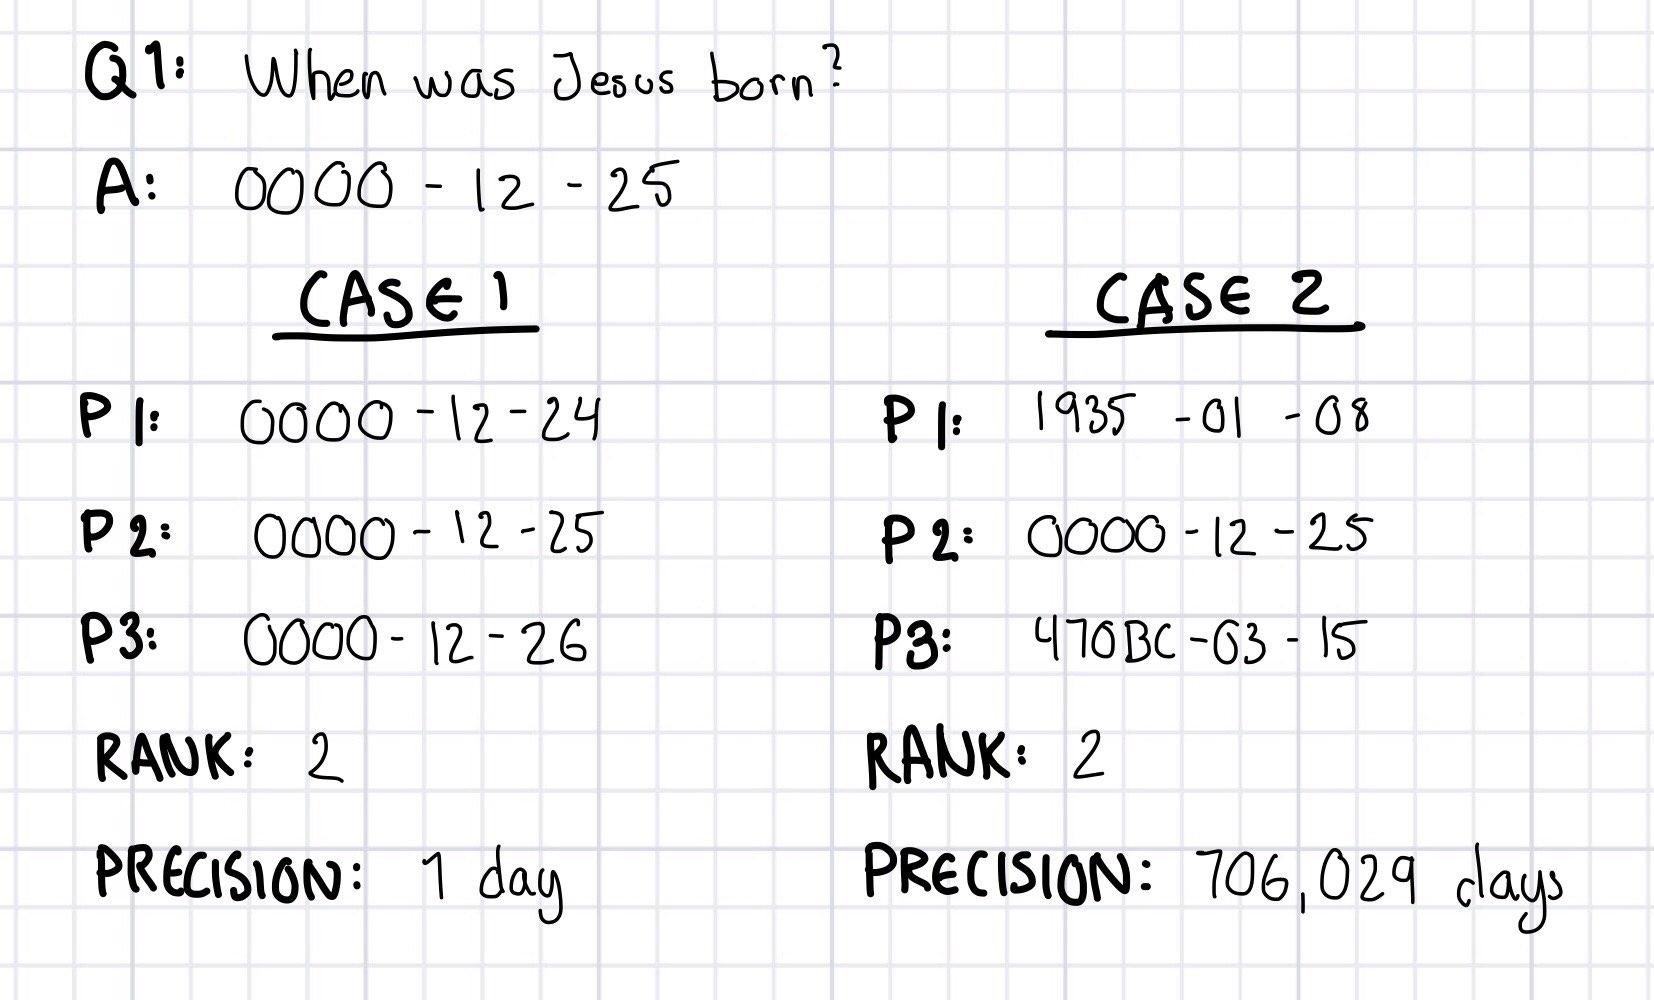 Q1: When was Jesus born?
A: 0000 - 12 - 25
CASE 1
P1: 0000 - 12 - 24
P2: 0000 - 12 - 25
P3: 0000 - 12 - 26
RANK: 2
PRECISION: 1 day
CASE 2
P1: 1935 - 01 - 08
P2: 0000 - 12 - 25
P3: 470BC - 03 - 15
RANK: 2
PRECISION: 706,029 days